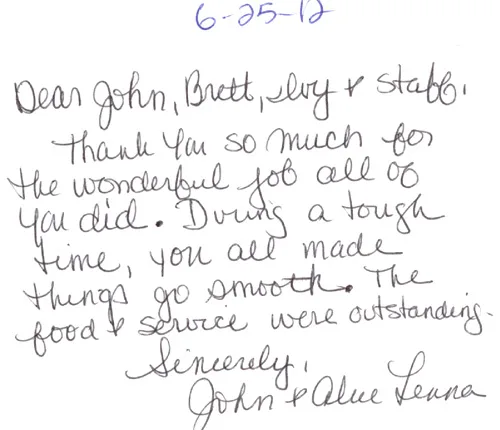 6-25-12
Dear John, Brett, Ivy & staff,
Thank You so much for
the wonderful job all of
you did. During a tough
time, you all made
things go smooth. The
food & service were outstanding.
Sincerely,
John &